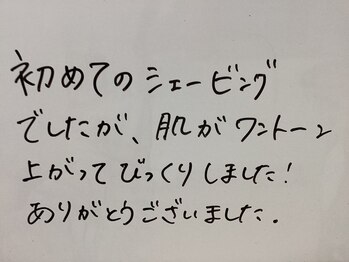 初めてのシェービング
でしたが、肌がワントーン
上がってびっくりしました!
ありがとうございました.